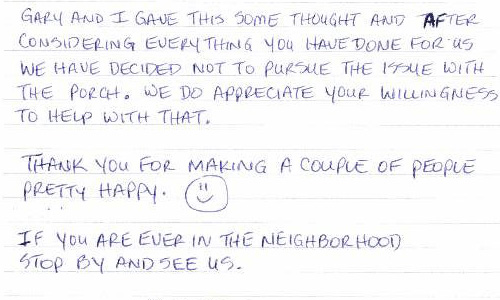 GARY AND I GAVE THIS SOME THOUGHT AND AFTER
CONSIDERING EVERYTHING YOU HAVE DONE FOR US
WE HAVE DECIDED NOT TO PURSUE THE ISSUE WITH
THE PORCH. WE DO APPRECIATE YOUR WILLINGNESS
TO HELP WITH THAT.
THANK YOU FOR MAKING A COUPLE OF PEOPLE
PRETTY HAPPY.
IF YOU ARE EVER IN THE NEIGHBORHOOD
STOP BY AND SEE US.